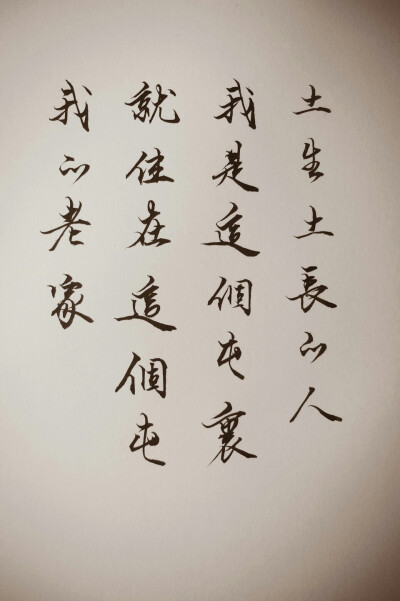 我的老家
就住在這個屯
我是這個屯裏
土生土長的人